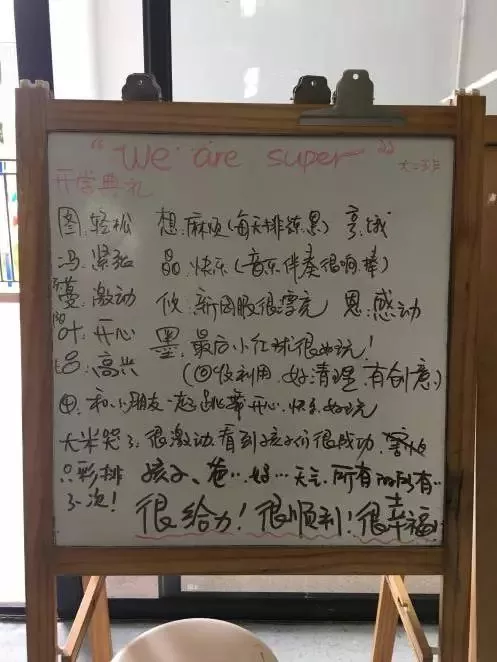 "We are super"
开学典礼
图:轻松 想:麻烦(每天排练累) 亨:饿
冯:紧张 晶:快乐(音乐伴奏很响、棒)
蔓:激动 悠:新园服很漂亮 恩:感动
叶:开心 墨:最后小红球很好玩!
吕:高兴 (回收利用、好清理、有创意)
和小朋友一起跳舞开心、快乐、好玩
大米哭了:很激动,看到孩子们很成功,害怕
只彩排 孩子、爸··好··天气 所有的所有··
了一次! 很给力!很顺利!很幸福!